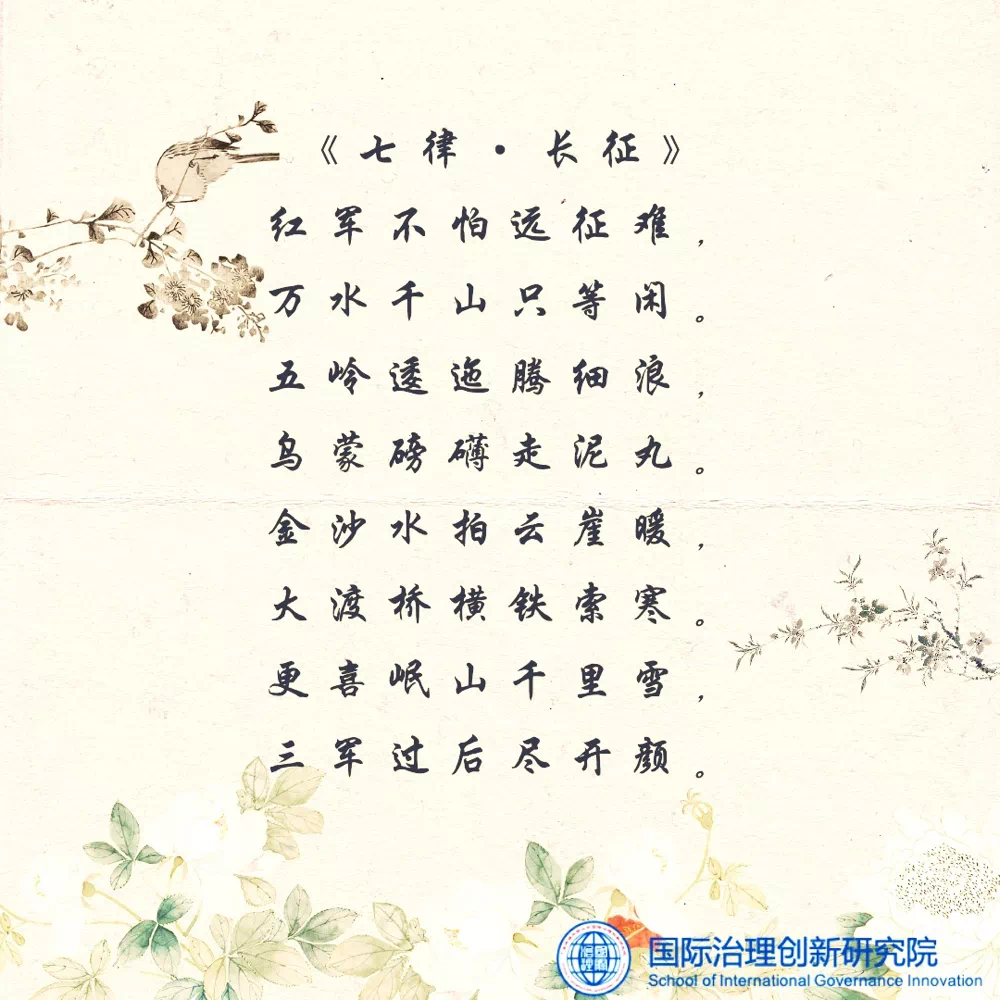 《七律·长征》
红军不怕远征难，
万水千山只等闲。
五岭逶迤腾细浪，
乌蒙磅礴走泥丸。
金沙水拍云崖暖，
大渡桥横铁索寒。
更喜岷山千里雪，
三军过后尽开颜。
国际治理创新研究院
School of International Governance Innovation